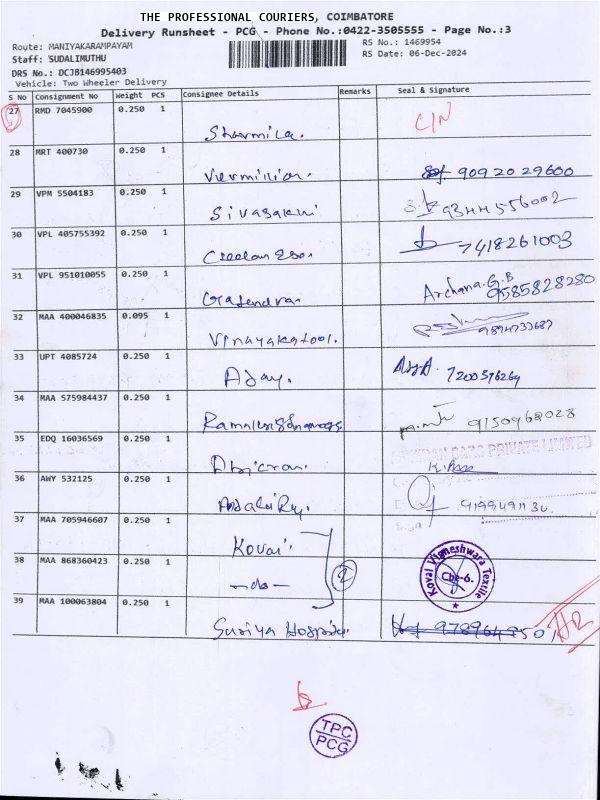 THE PROFESSIONAL COURIERS, COIMBATORE
Delivery Runsheet - PCG - Phone No.:0422-3505555 - Page No.:3
Route: MANIYAKARAMPAYAM
RS No.: 1469954
Staff: SUDALIMUTHU
RS Date: 06-Dec-2024
DRS No.: DCJB146995403
Vehicle: Two Wheeler Delivery
S No Consignment No Weight PCS Consignee Details Remarks Seal & Signature
27 RMD 7045900 0.250 1 Sharmila. C/N
28 MRT 400730 0.250 1 Vermilion. 90920 29600
29 VPM 5504183 0.250 1 Sivasakhi 9344556002
30 VPL 405755392 0.250 1 7418261003
31 VPL 951010055 0.250 1 Gajendra. Archana.G.B 9585828280
32 MAA 400046835 0.095 1 Vinayakatool. 9894733687
33 UPT 4085724 0.250 1 Ajay. 7200376264
34 MAA 575984437 0.250 1 9150968028
35 EDQ 16036569 0.250 1 PRIVATE LIMITED
36 AWY 532125 0.250 1
37 MAA 705946607 0.250 1 Kovai.
38 MAA 868360423 0.250 1 -do- 2 Kovai Vigneshwara Textile Cbe-6.
39 MAA 100063804 0.250 1 Suriya Hospital.
TPC
PCG